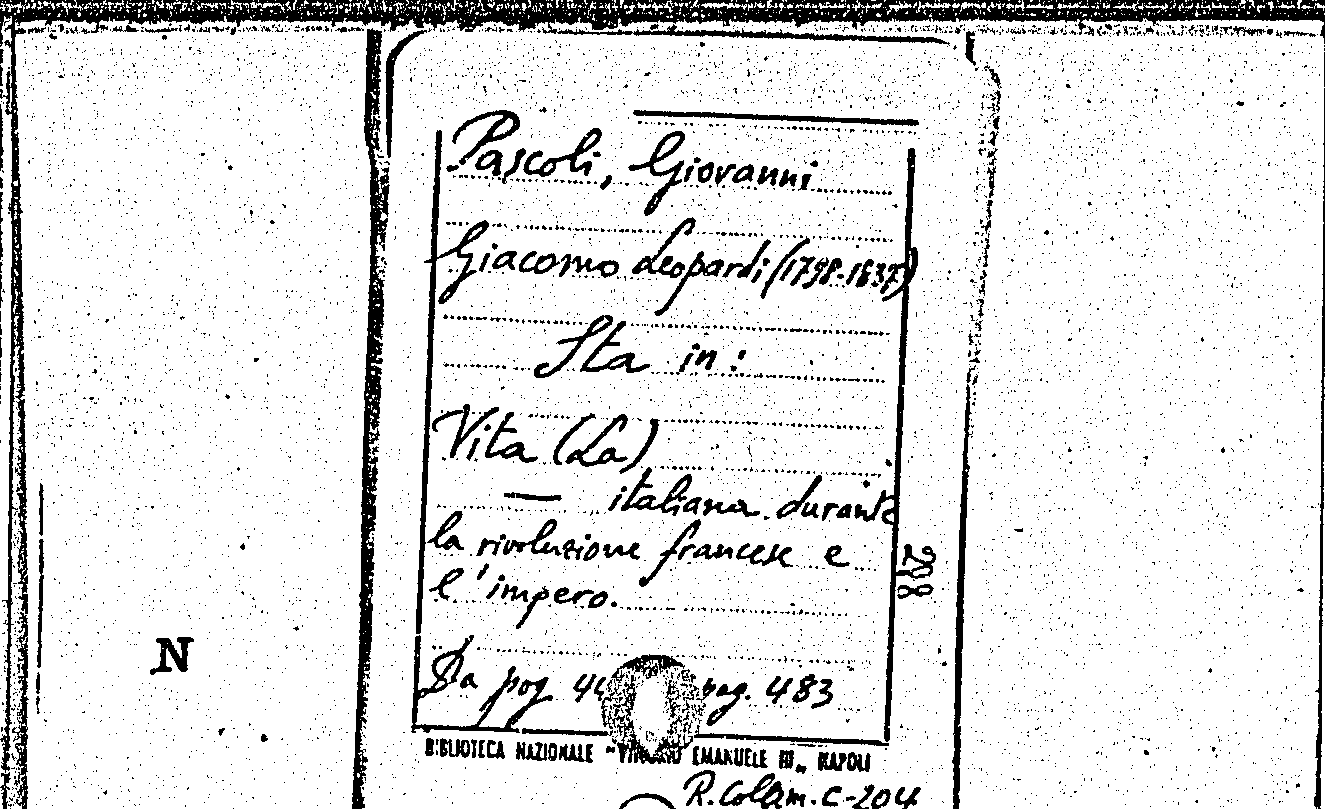 Pascoli, Giovanni
Giacomo Leopardi (1798-1837)
Sta in:
Vita (La)
— italiana durante
la rivoluzione francese e
l'impero.
Da pag. pag. 483
BIBLIOTECA NAZIONALE "VITTORIO EMANUELE III„ NAPOLI
R. Colam. C-204
208
N